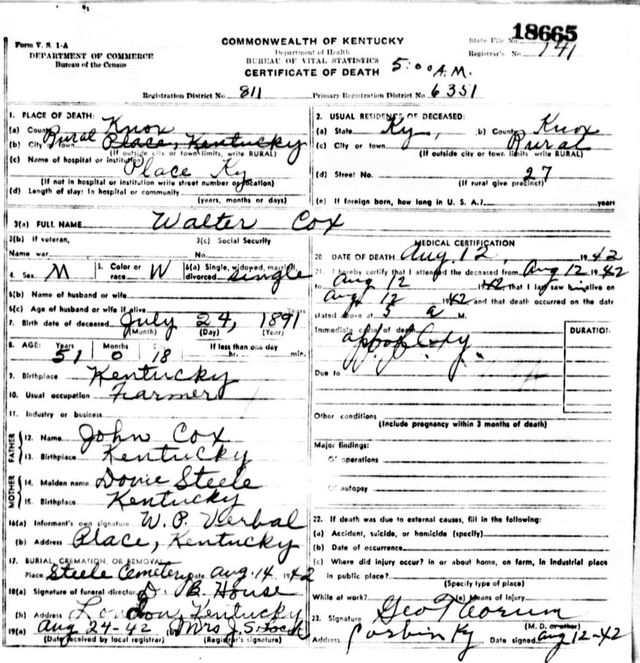 18665
Form V. S. 1-A
COMMONWEALTH OF KENTUCKY
State File No.
DEPARTMENT OF COMMERCE
Department of Health
Registrar's No. 141
Bureau of the Census
BUREAU OF VITAL STATISTICS
CERTIFICATE OF DEATH
5:00 A.M.
Registration District No. 811
Primary Registration District No. 6351
1. PLACE OF DEATH:
(a) County Knox
(b) City Rural Place, Kentucky
(If outside city or town limits, write RURAL)
(c) Name of hospital or institution
Place Ky
(If not in hospital or institution write street number or location)
(d) Length of stay: In hospital or community
(years, months or days)
2. USUAL RESIDENCE OF DECEASED:
(a) State Ky, (b) County Knox
(c) City or town Rural
(If outside city or town limits, write RURAL)
(d) Street No. 27
(If rural give precinct)
(e) If foreign born, how long in U. S. A.? years
3(a) FULL NAME Walter Cox
3(b) If veteran,
3(c) Social Security
Name war
No.
4. Sex M 5. Color or race W 6(a) Single, widowed, married, divorced Single
6(b) Name of husband or wife
6(c) Age of husband or wife if alive
7. Birth date of deceased July 24, 1891
(Month) (Day) (Year)
8. AGE: Years Months Days If less than one day
51 0 18 hr. min.
9. Birthplace Kentucky
10. Usual occupation Farmer
11. Industry or business
FATHER
12. Name John Cox
13. Birthplace Kentucky
MOTHER
14. Maiden name Dovie Steele
15. Birthplace Kentucky
16(a) Informant's own signature W. P. Verbal
(b) Address Place, Kentucky
17. BURIAL, CREMATION, OR REMOVAL
Place Steele Cemetery Date Aug. 14 1942
18(a) Signature of funeral director D. B. House
(b) Address London, Kentucky
19(a) Aug 24-42 (b) Mrs J. S.
(Date received by local registrar) (Registrar's signature)
MEDICAL CERTIFICATION
20. DATE OF DEATH Aug. 12, 1942
21. I hereby certify that I attended the deceased from Aug 12 1942
to Aug 12 1942 that I last saw him alive on
Aug 12 1942 and that death occurred on the date
stated above at 5 a M.
Immediate cause of death
DURATION
Due to
Other conditions
(Include pregnancy within 3 months of death)
Major findings:
Of operations
Of autopsy
22. If death was due to external causes, fill in the following:
(a) Accident, suicide, or homicide (specify)
(b) Date of occurrence
(c) Where did injury occur? in or about home, on farm, in industrial place
in public place?
(Specify type of place)
While at work? (e) Means of injury
23. Signature Geo
(M. D. or other)
Address Corbin Ky Date signed Aug 12-42